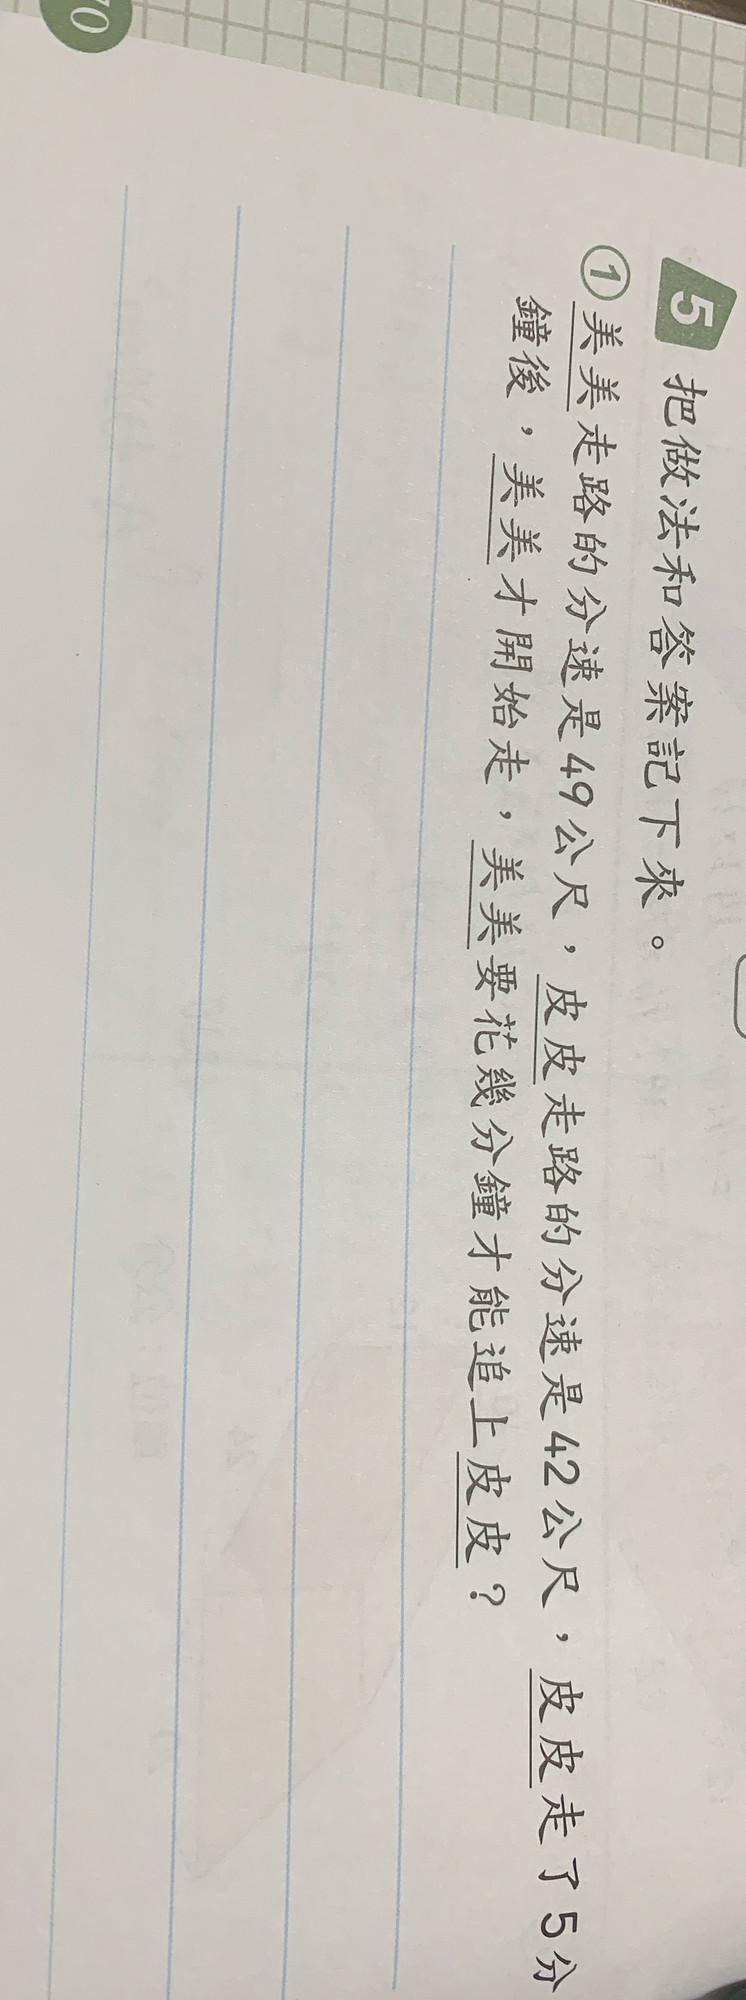 5 把做法和答案記下來。
①美美走路的分速是49公尺，皮皮走路的分速是42公尺，皮皮走了5分
鐘後，美美才開始走，美美要花幾分鐘才能追上皮皮？